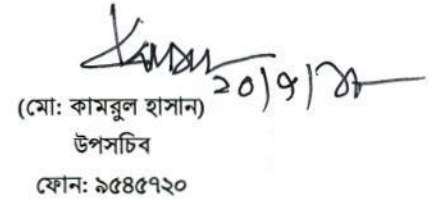 ২০|৭|
(মো: কামরুল হাসান)
উপসচিব
ফোন: ৯৫৪৫৭২০